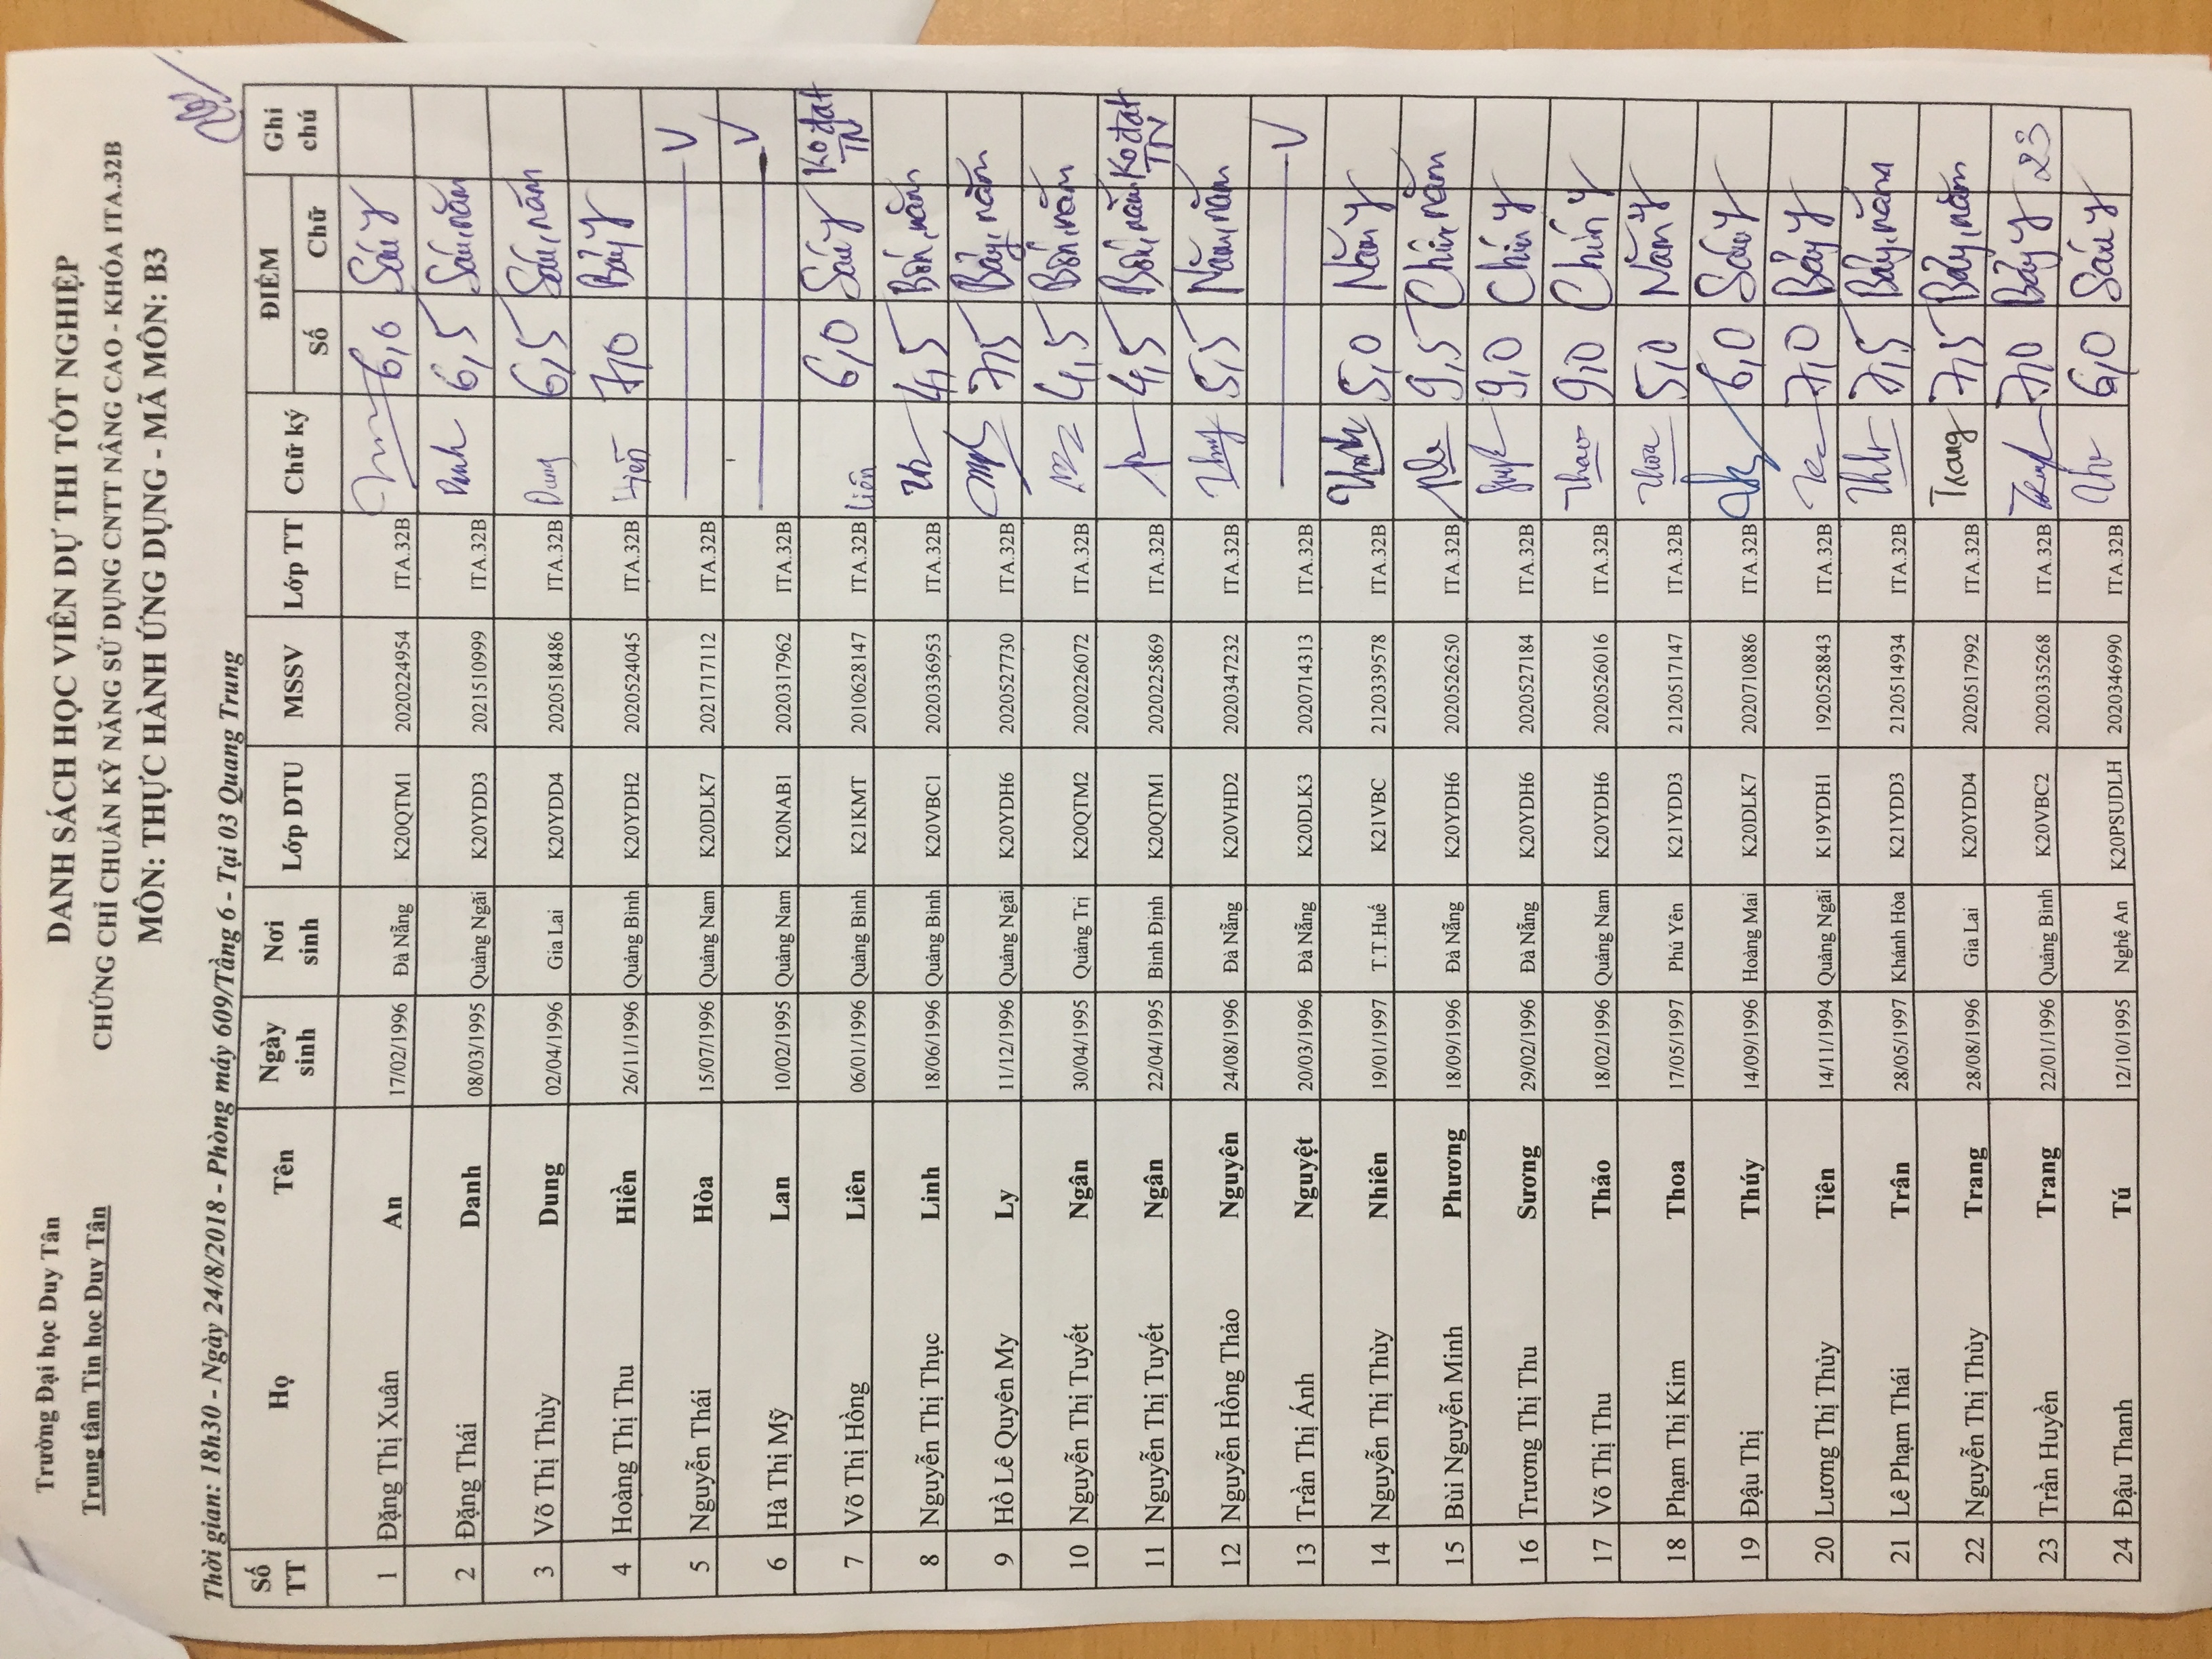 Trường Đại học Duy Tân
Trung tâm Tin học Duy Tân
DANH SÁCH HỌC VIÊN DỰ THI TỐT NGHIỆP
CHỨNG CHỈ CHUẨN KỸ NĂNG SỬ DỤNG CNTT NÂNG CAO - KHÓA ITA.32B
MÔN: THỰC HÀNH ỨNG DỤNG - MÃ MÔN: B3
Thời gian: 18h30 - Ngày 24/8/2018 - Phòng máy 609/Tầng 6 - Tại 03 Quang Trung
Số TT Họ Tên Ngày sinh Nơi sinh Lớp DTU MSSV Lớp TT Chữ ký ĐIỂM Số Chữ Ghi chú
1 Đặng Thị Xuân An 17/02/1996 Đà Nẵng K20QTM1 2020224954 ITA.32B 6,0 Sáu y
2 Đặng Thái Danh 08/03/1995 Quảng Ngãi K20YDD3 2021510999 ITA.32B Danh 6,5 Sáu, năm
3 Võ Thị Thùy Dung 02/04/1996 Gia Lai K20YDD4 2020518486 ITA.32B Dung 6,5 Sáu, năm
4 Hoàng Thị Thu Hiền 26/11/1996 Quảng Bình K20YDH2 2020524045 ITA.32B Hiền 7,0 Bảy y
5 Nguyễn Thái Hòa 15/07/1996 Quảng Nam K20DLK7 2021717112 ITA.32B V
6 Hà Thị Mỹ Lan 10/02/1995 Quảng Nam K20NAB1 2020317962 ITA.32B V
7 Võ Thị Hồng Liên 06/01/1996 Quảng Bình K21KMT 2010628147 ITA.32B Liên 6,0 Sáu y Ko đạt TN
8 Nguyễn Thị Thục Linh 18/06/1996 Quảng Bình K20VBC1 2020336953 ITA.32B 4,5 Bốn, năm
9 Hồ Lê Quyên My Ly 11/12/1996 Quảng Ngãi K20YDH6 2020527730 ITA.32B 7,5 Bảy, năm
10 Nguyễn Thị Tuyết Ngân 30/04/1995 Quảng Trị K20QTM2 2020226072 ITA.32B 4,5 Bốn, năm
11 Nguyễn Thị Tuyết Ngân 22/04/1995 Bình Định K20QTM1 2020225869 ITA.32B 4,5 Bốn, năm Ko đạt TN
12 Nguyễn Hồng Thảo Nguyên 24/08/1996 Đà Nẵng K20VHD2 2020347232 ITA.32B 5,5 Năm, năm
13 Trần Thị Ánh Nguyệt 20/03/1996 Đà Nẵng K20DLK3 2020714313 ITA.32B V
14 Nguyễn Thị Thùy Nhiên 19/01/1997 T.T.Huế K21VBC 2120339578 ITA.32B 5,0 Năm y
15 Bùi Nguyễn Minh Phương 18/09/1996 Đà Nẵng K20YDH6 2020526250 ITA.32B 9,5 Chín, năm
16 Trương Thị Thu Sương 29/02/1996 Đà Nẵng K20YDH6 2020527184 ITA.32B 9,0 Chín y
17 Võ Thị Thu Thảo 18/02/1996 Quảng Nam K20YDH6 2020526016 ITA.32B Thao 9,0 Chín y
18 Phạm Thị Kim Thoa 17/05/1997 Phú Yên K21YDD3 2120517147 ITA.32B Thoa 5,0 Năm y
19 Đậu Thị Thúy 14/09/1996 Hoàng Mai K20DLK7 2020710886 ITA.32B 6,0 Sáu y
20 Lương Thị Thủy Tiên 14/11/1994 Quảng Ngãi K19YDH1 1920528843 ITA.32B 7,0 Bảy y
21 Lê Phạm Thái Trân 28/05/1997 Khánh Hòa K21YDD3 2120514934 ITA.32B 7,5 Bảy, năm
22 Nguyễn Thị Thùy Trang 28/08/1996 Gia Lai K20YDD4 2020517992 ITA.32B Trang 7,5 Bảy, năm
23 Trần Huyền Trang 22/01/1996 Quảng Bình K20VBC2 2020335268 ITA.32B 7,0 Bảy y 23
24 Đậu Thanh Tú 12/10/1995 Nghệ An K20PSUDLH 2020346990 ITA.32B 6,0 Sáu y